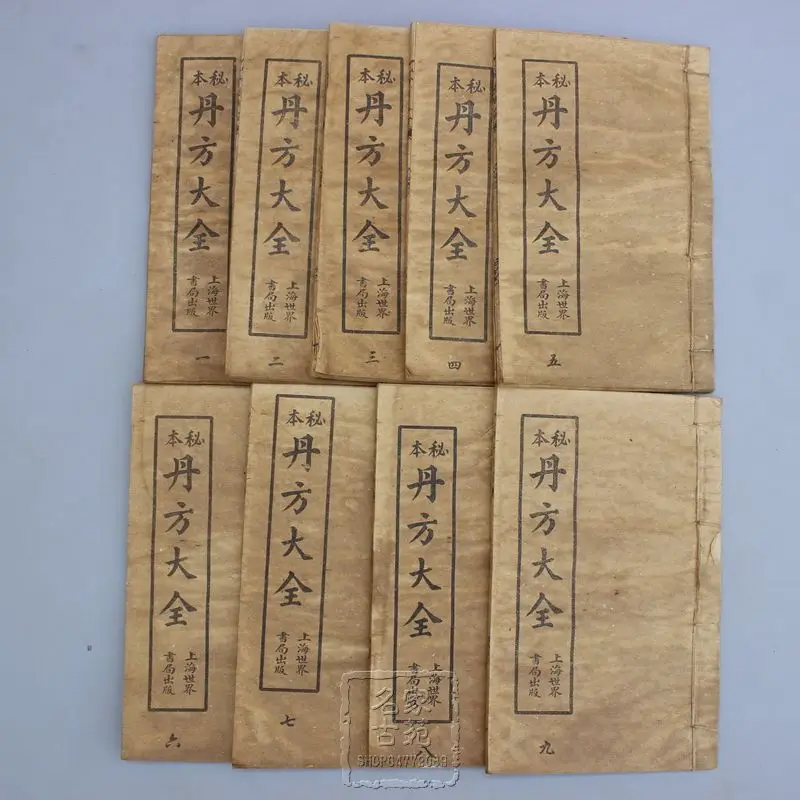 秘本
丹方大全
上海世界
書局出版
一
秘本
丹方大全
上海世界
書局出版
二
秘本
丹方大全
上海世界
書局出版
三
秘本
丹方大全
上海世界
書局出版
四
秘本
丹方大全
上海世界
書局出版
五
秘本
丹方大全
上海世界
書局出版
六
秘本
丹方大全
上海世界
書局出版
七
秘本
丹方大全
上海世界
書局出版
八
秘本
丹方大全
上海世界
書局出版
九
名家
古苑